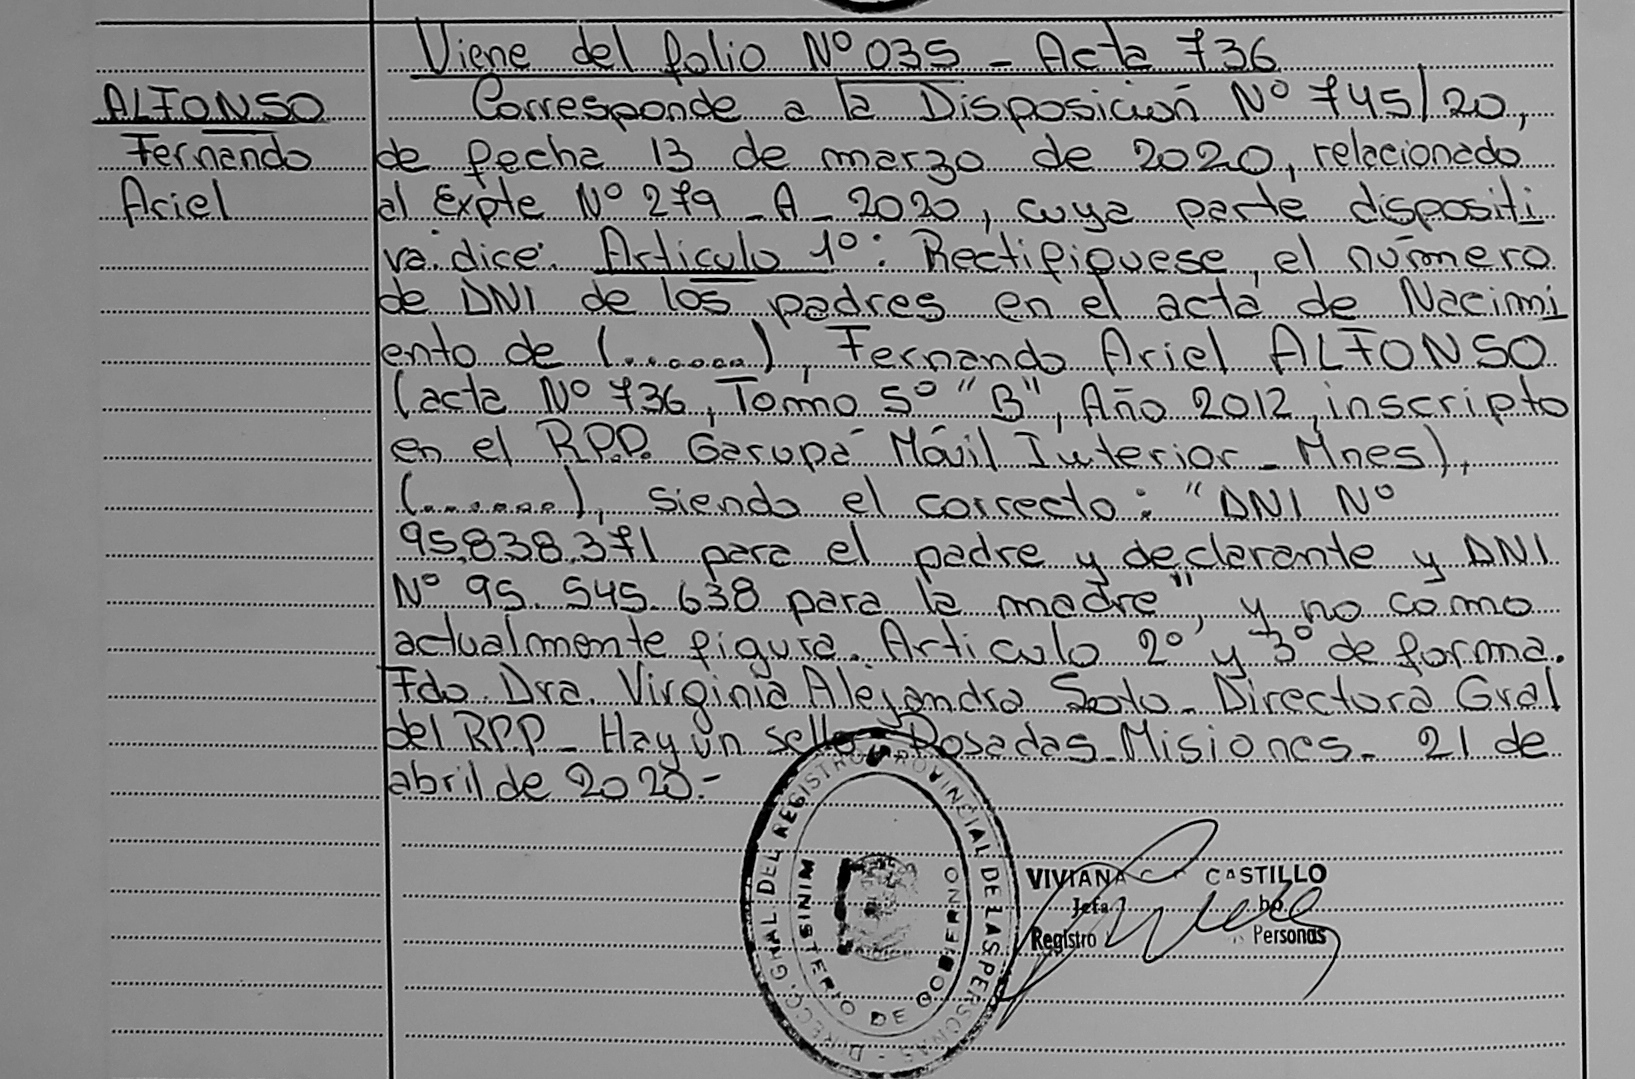 Viene del folio Nº 035 - Acta 736
ALFONSO
Fernando
Ariel
Corresponde a la Disposición Nº 745/20,
de fecha 13 de marzo de 2020, relacionado
al Expte Nº 279 - A - 2020, cuya parte dispositi
va dice: Artículo 1º: Rectifiquese, el número
de DNI de los padres en el acta de Nacimi
ento de (.......), Fernando Ariel ALFONSO
(acta Nº 736, Tomo 5º "B", Año 2012, inscripto
en el R.P.P. Garupá Móvil Interior - Mnes),
(.......), siendo el correcto: "DNI Nº
95.838.371 para el padre y declarante y DNI
Nº 95.545.638 para la madre", y no como
actualmente figura. Artículo 2º y 3º de forma.
Fdo. Dra. Virginia Alejandra Soto - Directora Gral
del RPP - Hay un sello - Posadas - Misiones - 21 de
abril de 2020.-
DIRECC. GRAL DEL REGISTRO PROVINCIAL DE LAS PERSONAS
MINISTERIO DE GOBIERNO
VIVIANA CASTILLO
Jefa
Registro Personas